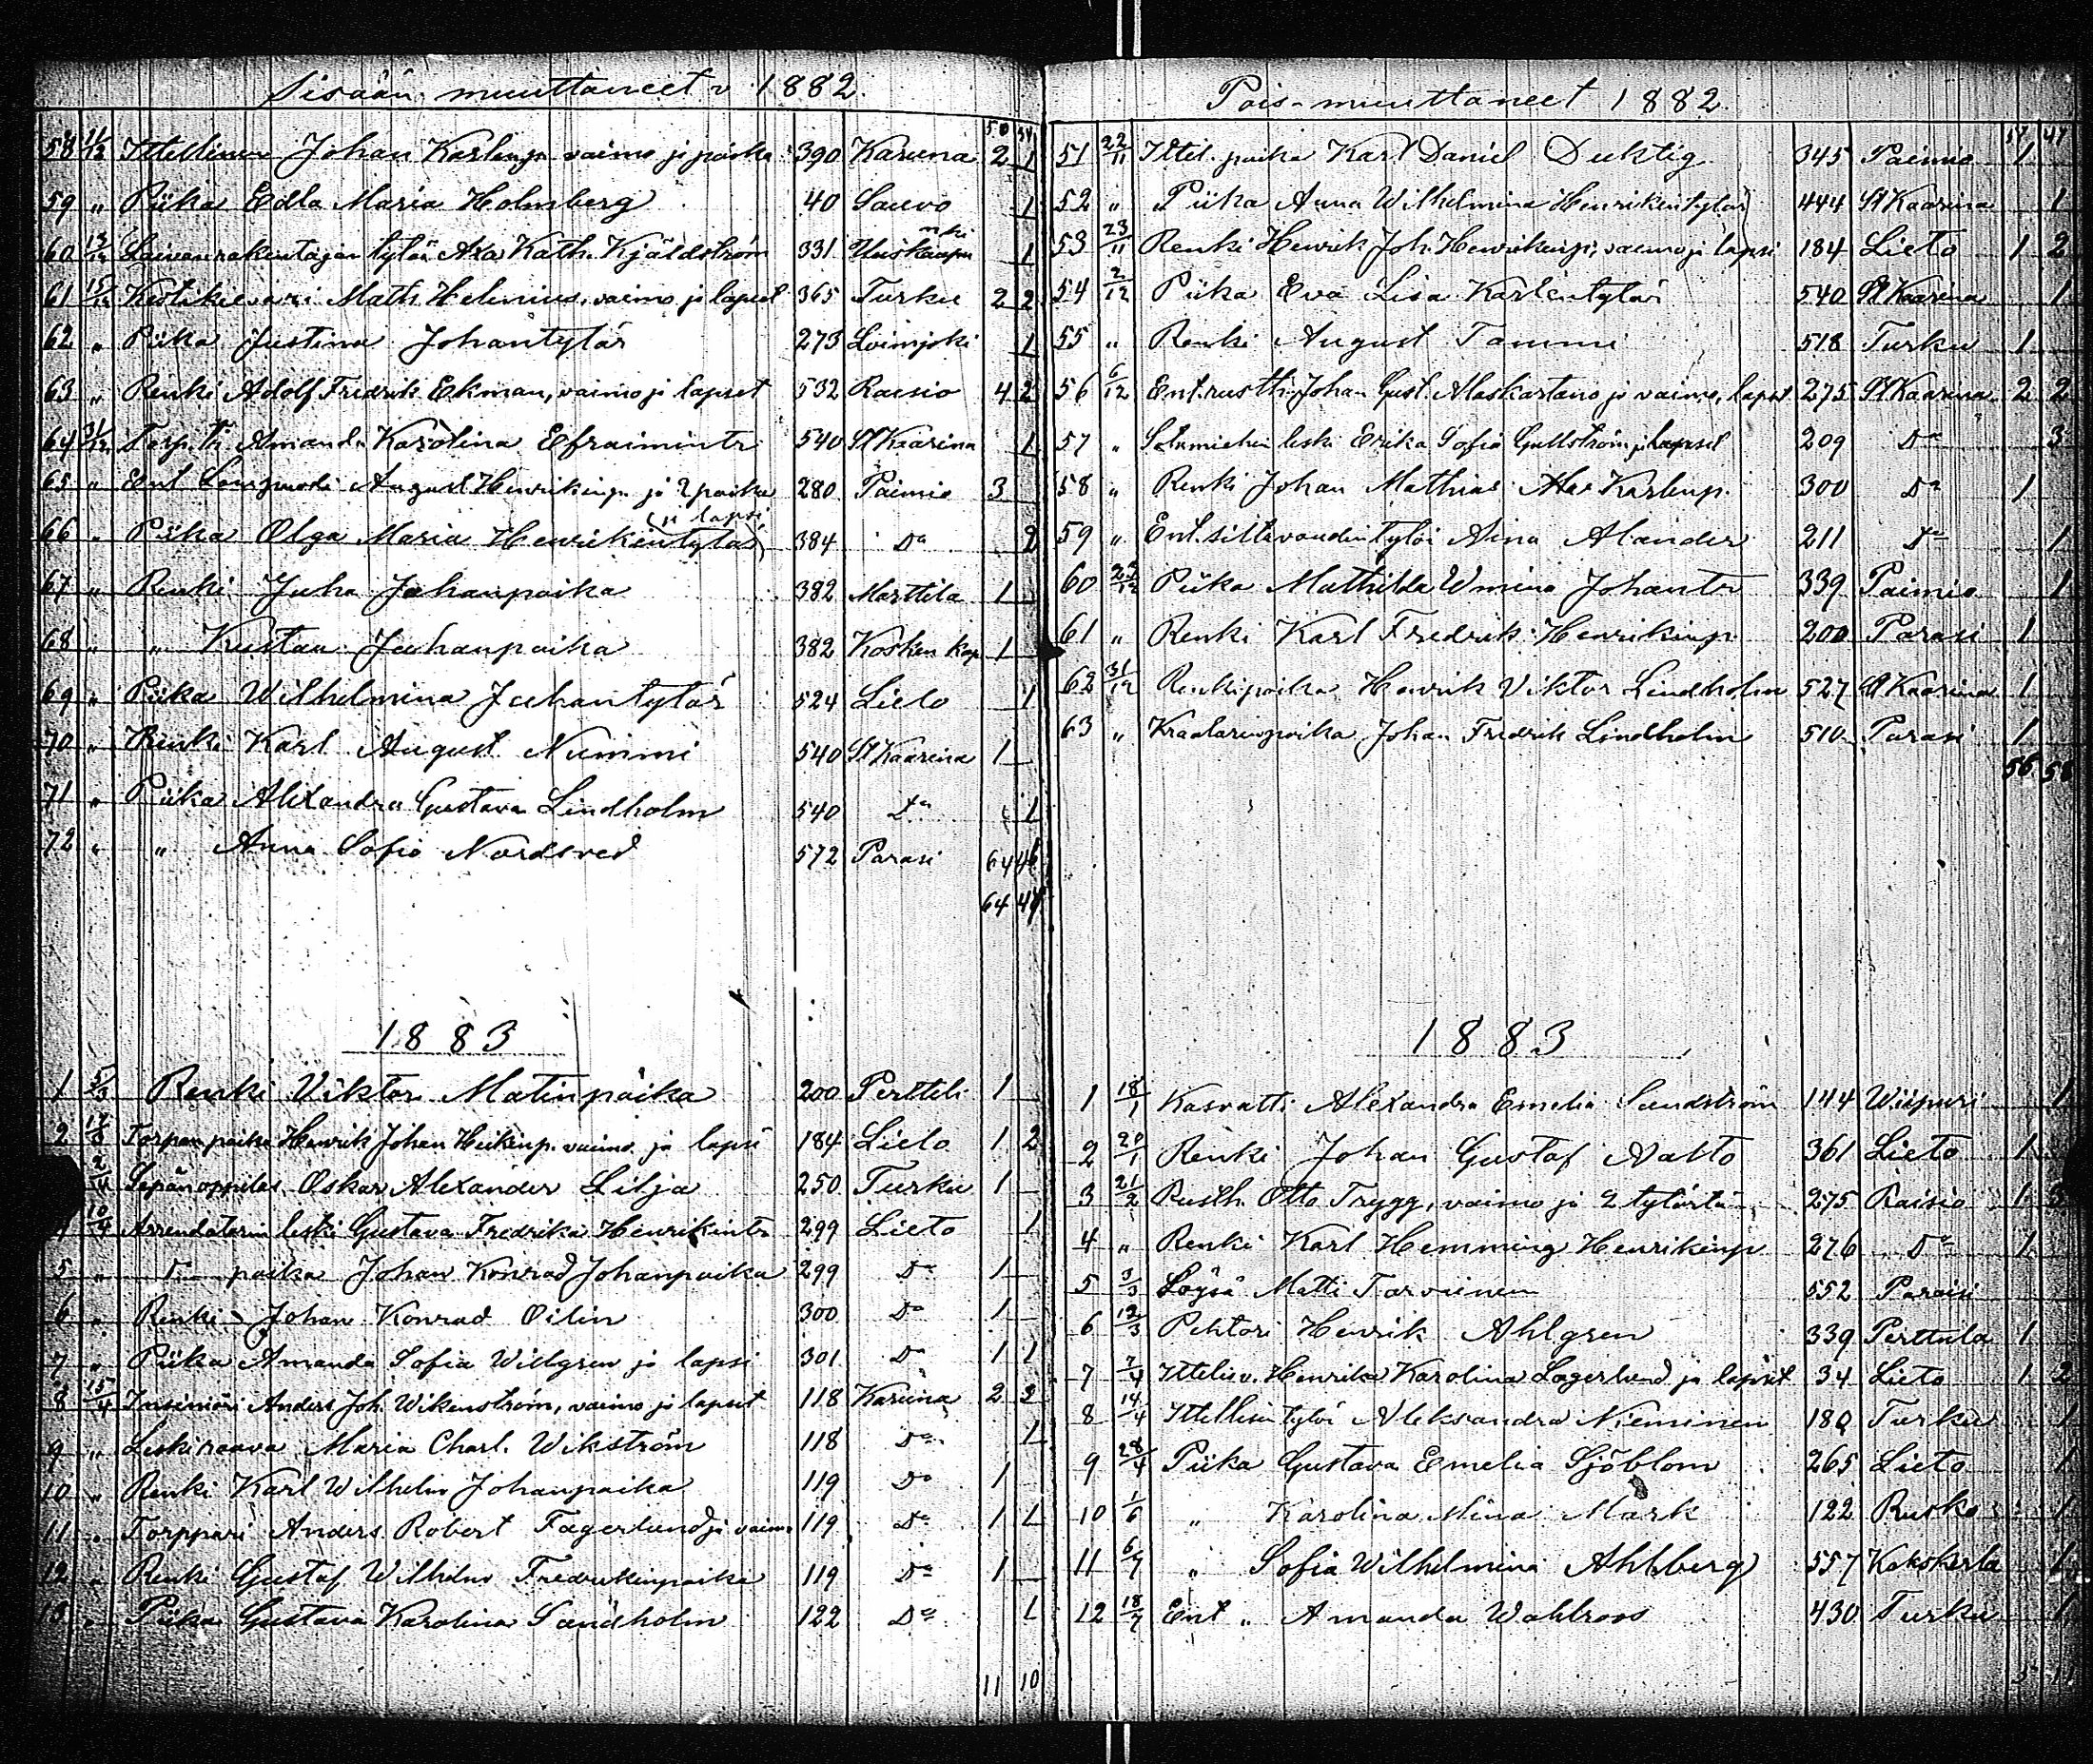 Sisään muuttaneet v 1882.
50 34
58 11/12 Ittellinen Johan Karlenp. vaimo ja poika 390 Karuna 2 1
59 " Piika Edla Maria Holmberg 40 Sauvo 1
60 13/12 Laivanrakentajan tytär Axa Kath. Kjäldström 331 1
61 15/12 Kestikievari Math. Helenius, vaimo ja lapset 365 Turku 2 2
62 " Piika Justina Johantytär 273 Loimjoki 1
63 " Renki Adolf Fredrik Ekman, vaimo ja lapset 532 Raisio 4 2
64 31/12 Torp. tr Amanda Karolina Efraimintr 540 St Kaarina 1
65 " Ent August Henrikinp. ja 2 poika 280 Paimio 3
(ja lapsi
66 " Piika Olga Maria Henrikintytär 384 Do 2
67 " Renki Juha Juhanpoika 382 Marttila 1
68 " " Kustaa Juhanpoika 382 Kosken kap 1
69 " Piika Wilhelmina Juhantytär 524 Lieto 1
70 " Renki Karl August Nummi 540 St Kaarina 1
71 " Piika Alexandra Gustava Lindholm 540 Do 1
72 " " Anna Sofia Nordsved 572 Parasi 64 46
64 47
1883
1 5/3 Renki Viktor Matinpoika 200 Pertteli 1
2 17/3 Torpan poika Henrik Johan Heikinp. vaimo ja lapsi 184 Lieto 1 2
2/4 Sepänoppilas Oskar Alexander Lilja 250 Turku 1
10/4 Arrendatorin leski Gustava Fredrika Henrikintr 299 Lieto 1
5 " Do poika Johan Konrad Johanpoika 299 Do 1
6 " Renki Johan Konrad Oilin 300 Do 1
7 " Piika Amanda Sofia Willgren ja lapsi 301 Do 1 1
8 15/4 Insiniöri Anders Joh. Wikenström, vaimo ja lapset 118 Karuna 2 3
9 " Leskirouva Maria Charl. Wikström 118 Do 1
10 " Renki Karl Wilhelm Johanpoika 119 Do 1
11 " Torppari Anders Robert Fagerlund ja vaimo 119 Do 1 1
12 " Renki Gustaf Wilhelm Fredrikinpoika 119 Do 1
13 " Piika Gustava Karolina Sandholm 122 Do 1
11 10
Pois-muuttaneet 1882
51 47
51 22/11 Ittel. poika Karl Daniel Duktig 345 Paimio 1
52 " Piika Anna Wilhelmina Henrikintytär 444 St Kaarina 1
53 23/11 Renki Henrik Joh. Henrikinp, vaimo ja lapsi 184 Lieto 1 2
54 2/12 Piika Eva Lisa Karlentytär 540 St Kaarina 1
55 " Renki August Tammi 518 Turku 1
56 6/12 Ent. rusth. Johan Gust. Alaskartano ja vaimo, lapset 275 St Kaarina 2 2
57 " Sotamiehen leski Erika Sofia Gullström ja lapset 209 Do 3
58 " Renki Johan Mathias Karlenp. 300 Do 1
59 " Ent. siltavoudin tytär Aina Alander 211 Do 1
60 23/12 Piika Mathilda Wmina Johantr 339 Paimio 1
61 " Renki Karl Fredrik Henrikinp. 200 Parasi 1
62 31/12 Renkipoika Henrik Viktor Lindholm 527 St Kaarina 1
63 " Kraatarinpoika Johan Fredrik Lindholm 510 Parasi 1
56 58
1883
1 18/1 Kasvatti Alexandra Emelia Sundström 144 Wiipuri 1
2 20/1 Renki Johan Gustaf Aalto 361 Lieto 1
3 21/2 Rusth. Otto Trygg, vaimo ja 2 tytärtä 275 Raisio 1 3
4 " Renki Karl Hemming Henrikinp 276 Do 1
5 3/3 Löysä Matti Tarvainen 552 Paraisi
6 12/3 Pehtori Henrik Ahlgren 339 Perttula 1
7 7/4 Ittelisn. Henrika Karolina Lagerlund ja lapset 34 Lieto 1 2
8 14/4 Ittellisen tytär Aleksandra Nieminen 180 Turku 1
9 28/4 Piika Gustava Emelia Sjöblom 265 Lieto 1
10 1/6 " Karolina Mina Mark 122 Rusko 1
11 6/7 " Sofia Wilhelmina Ahlberg 557 Kakskerta 1
12 18/7 Ent " Amanda Wahlroos 430 Turku 1
5 11